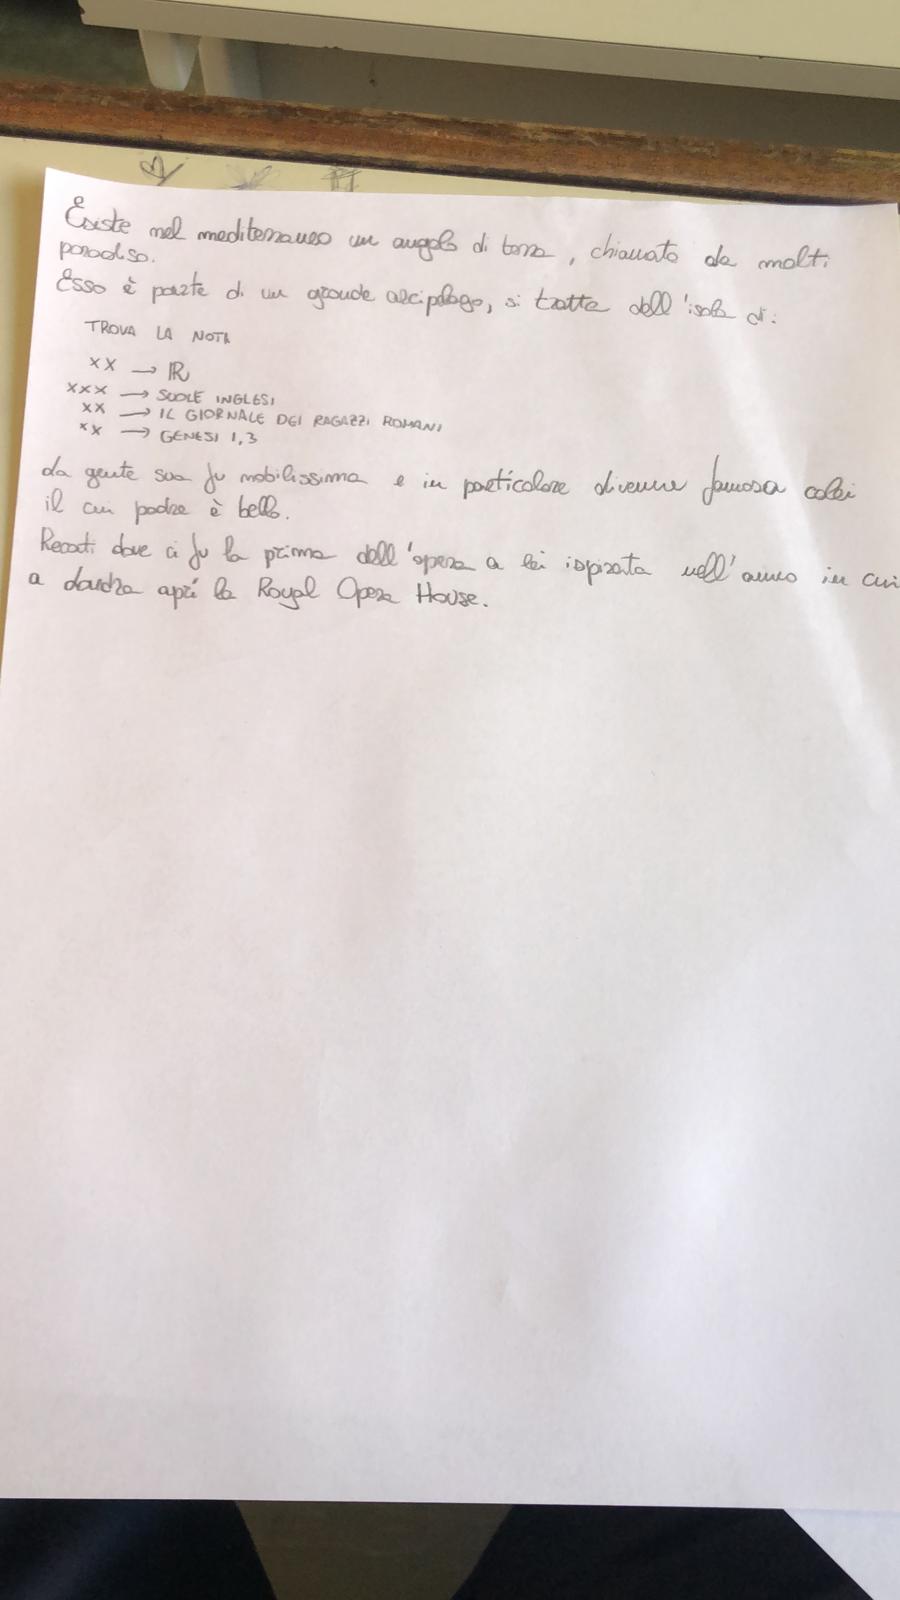 Esiste nel mediterraneo un angolo di terra, chiamato da molti
paradiso.
Esso è parte di un grande arcipelago, si tratta dell'isola di:
TROVA LA NOTA
XX → ℝ
XXX → SUOLE INGLESI
XX → IL GIORNALE DEI RAGAZZI ROMANI
XX → GENESI 1,3
da gente sua fu nobilissima e in particolare divenne famosa colei
il cui padre è bello.
Recati dove ci fu la prima dell'opera a lei ispirata nell'anno in cui
a Londra aprì la Royal Opera House.